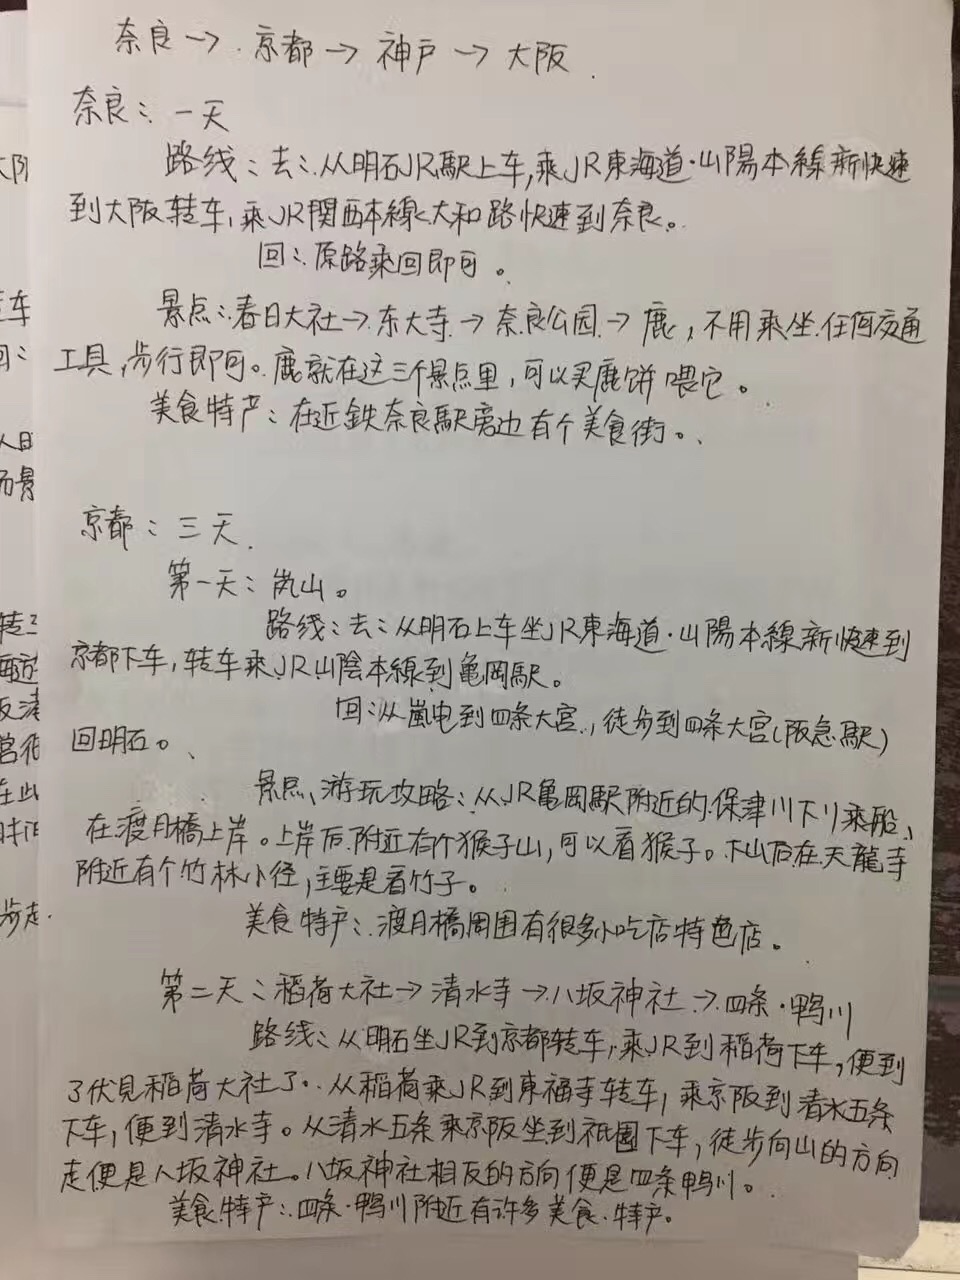 奈良→京都→神户→大阪
奈良：一天
路线：去：从明石JR駅上车,乘JR東海道·山陽本線新快速
到大阪转车,乘JR関西本線大和路快速到奈良。
回：原路乘回即可。
景点：春日大社→东大寺→奈良公园→鹿,不用乘坐任何交通
工具,步行即可。鹿就在这三个景点里,可以买鹿饼喂它。
美食特产：在近鉄奈良駅旁边有个美食街。
京都：三天
第一天：岚山。
路线：去：从明石上车坐JR東海道·山陽本線新快速到
京都下车,转车乘JR山陰本線到亀岡駅。
回：从嵐电到四条大宫,徒步到四条大宫(阪急駅)
回明石。
景点、游玩攻略：从JR亀岡駅附近的保津川下り乘船、
在渡月橋上岸。上岸后附近有个猴子山,可以看猴子。下山后在天龍寺
附近有个竹林小径,主要是看竹子。
美食特产：渡月橋周围有很多小吃店特色店。
第二天：稻荷大社→清水寺→八坂神社→四条·鸭川
路线：从明石坐JR到京都转车,乘JR到稻荷下车,便到
了伏見稻荷大社了。从稻荷乘JR到東福寺转车,乘京阪到清水五条
下车,便到清水寺。从清水五条乘京阪坐到祇園下车,徒步向山的方向
走便是八坂神社。八坂神社相反的方向便是四条鸭川。
美食特产：四条·鸭川附近有许多美食·特产。